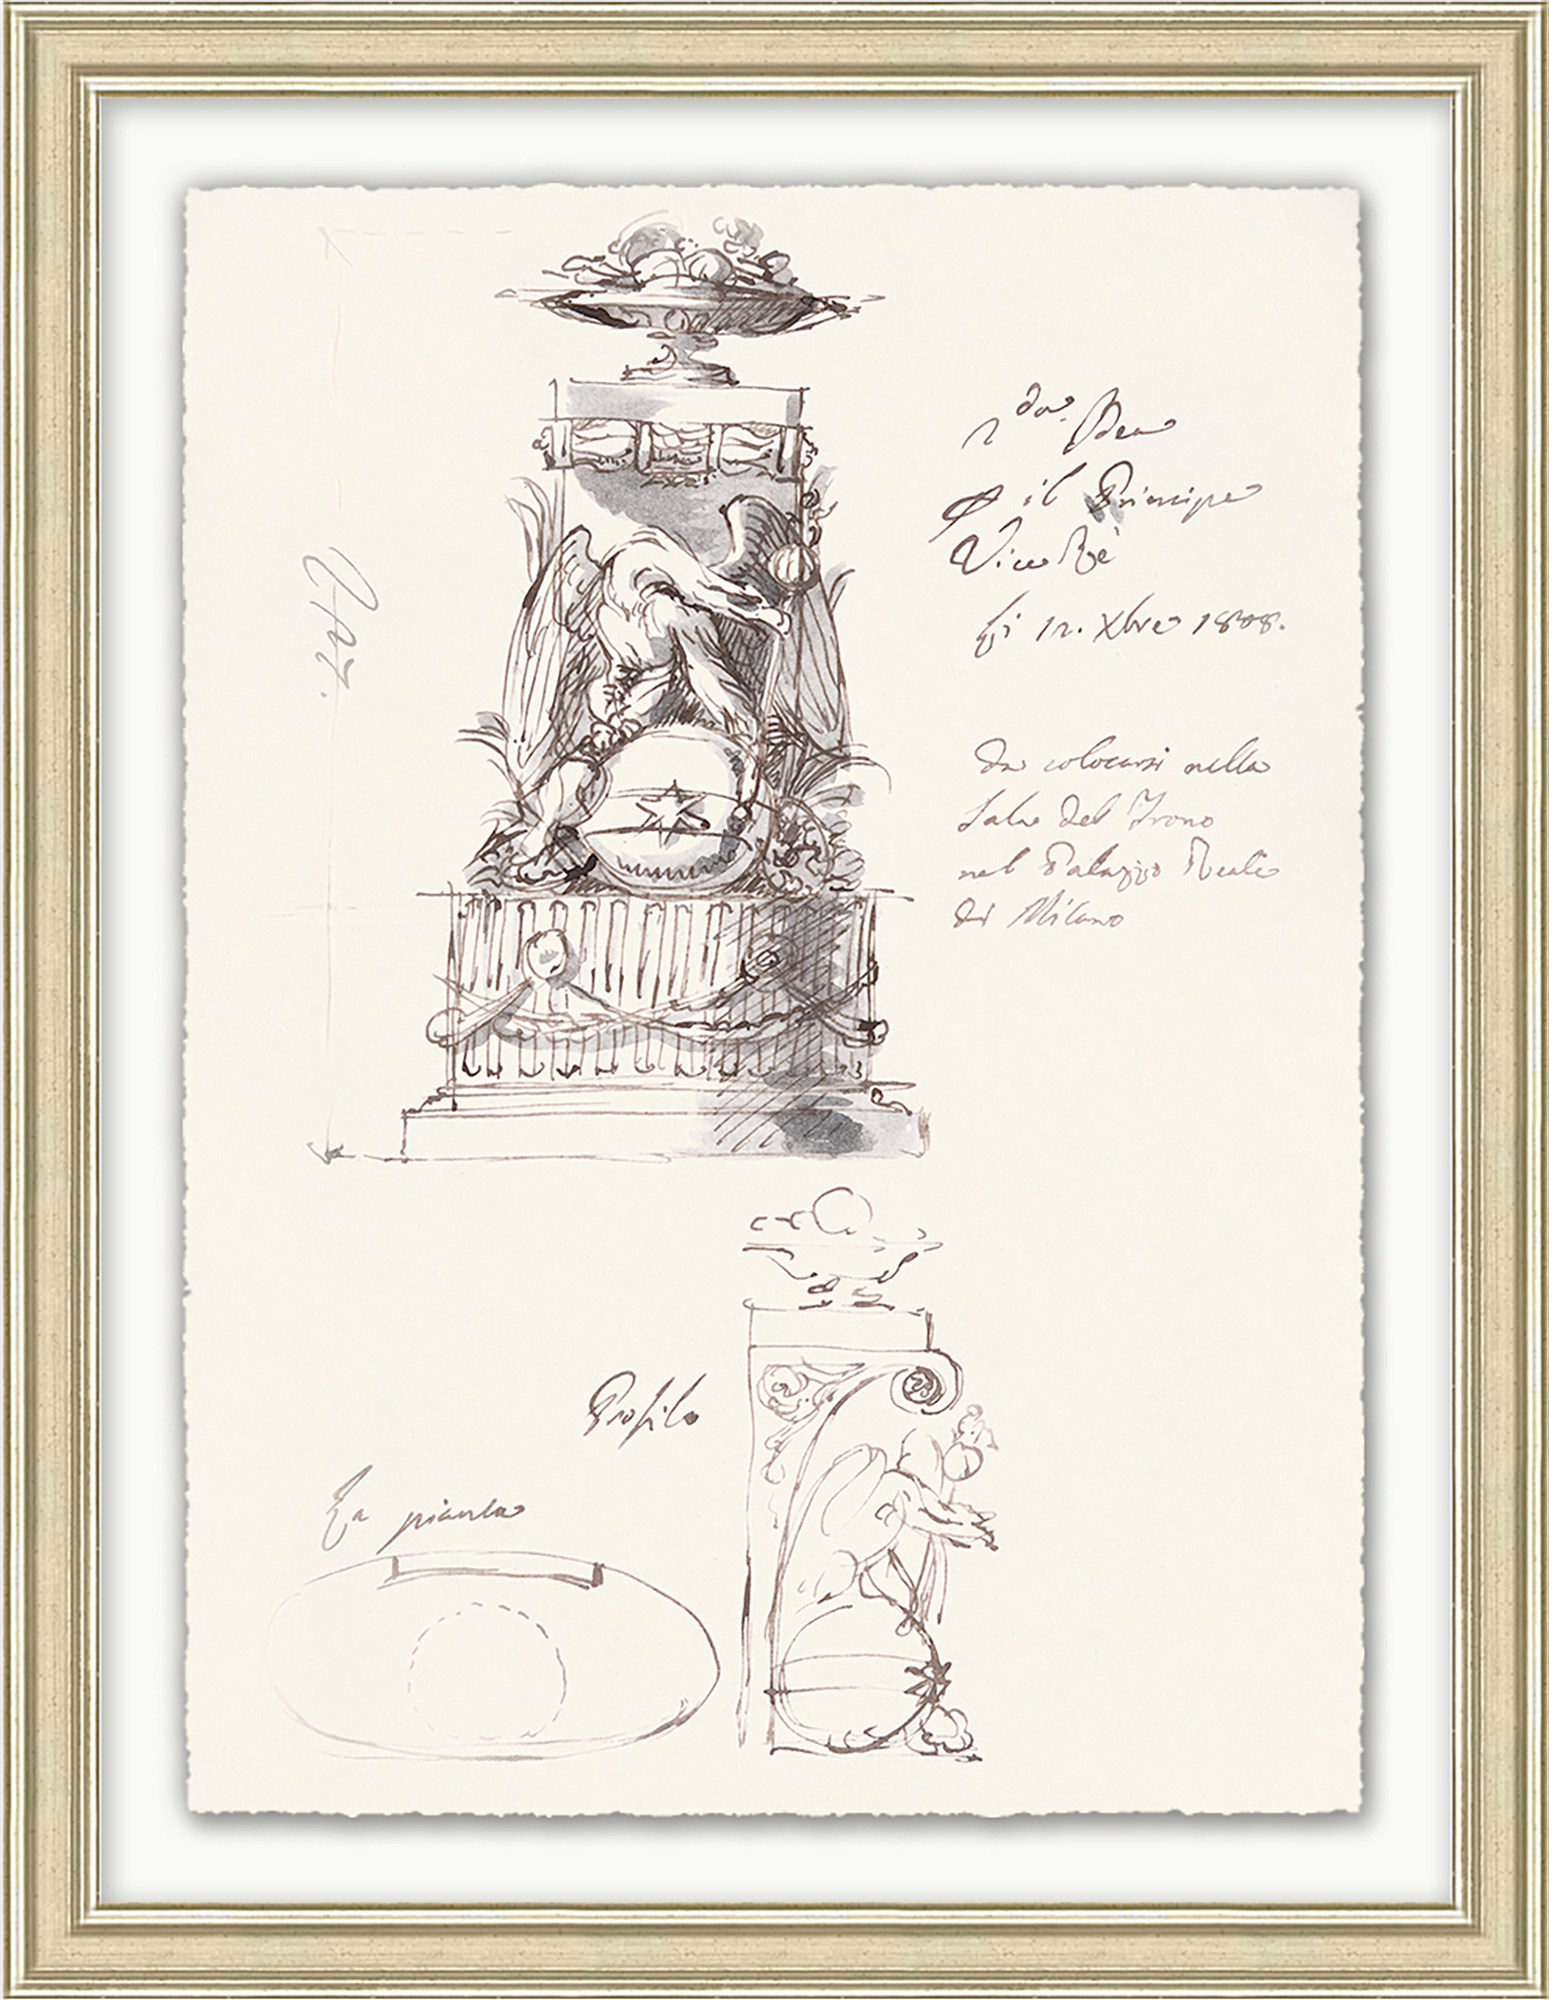 2da Idea
il Principe
Vice Rè
Li 12. Xbre 1808.
da colocarsi nella
Sala del Trono
nel Palazzo Reale
di Milano
Profilo
La pianta